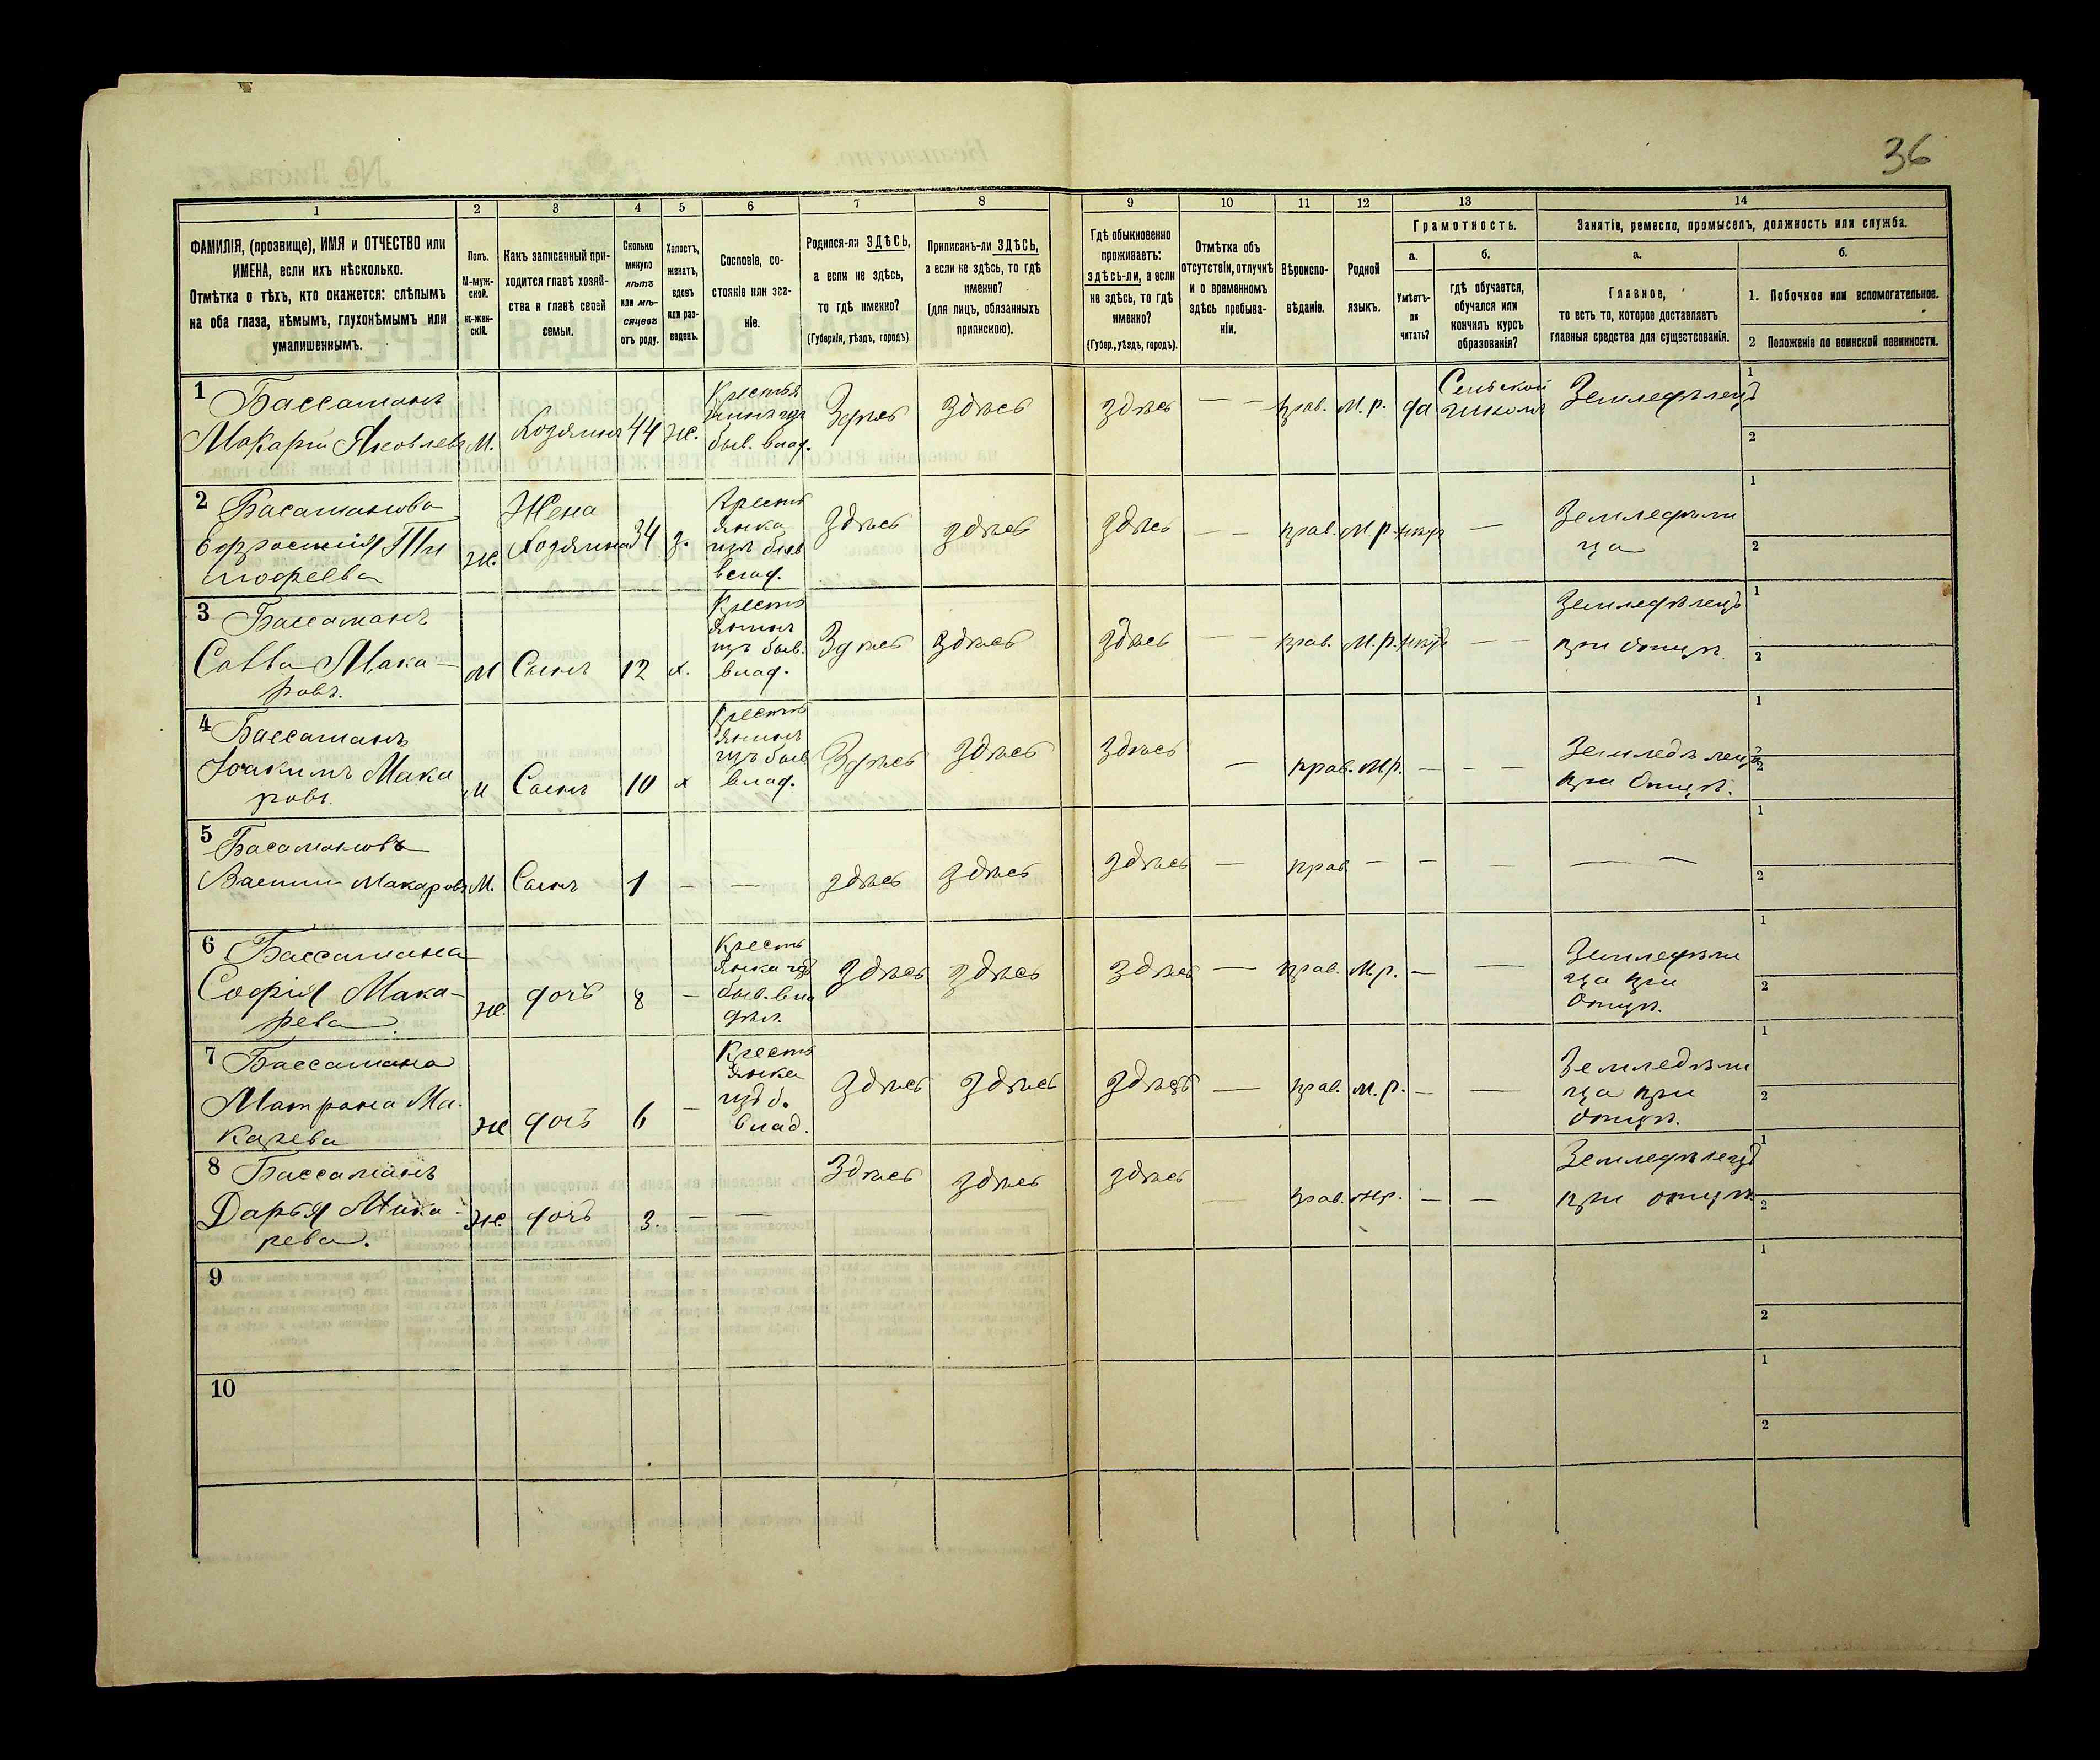 36
1 2 3 4 5 6 7 8 9 10 11 12 13 14
ФАМИЛІЯ, (прозвище), ИМЯ и ОТЧЕСТВО или
ИМЕНА, если ихъ нѣсколько.
Отмѣтка о тѣхъ, кто окажется: слѣпымъ
на оба глаза, нѣмымъ, глухонѣмымъ или
умалишеннымъ.
Полъ.
М-муж-
ской.
ж-жен-
скій.
Какъ записанный при-
ходится главѣ хозяй-
ства и главѣ своей
семьи.
Сколько
минуло
лѣтъ
или мѣ-
сяцевъ
отъ роду.
Холостъ,
женатъ,
вдовъ
или раз-
веденъ.
Сословіе, со-
стояніе или зва-
ніе.
Родился-ли ЗДѢСЬ,
а если не здѣсь,
то гдѣ именно?
(Губернія, уѣздъ, городъ)
Приписанъ-ли ЗДѢСЬ,
а если не здѣсь, то гдѣ
именно?
(для лицъ, обязанныхъ
припискою).
Гдѣ обыкновенно
проживаетъ:
здѣсь-ли, а если
не здѣсь, то гдѣ
именно?
(Губер., уѣздъ, городъ).
Отмѣтка объ
отсутствіи, отлучкѣ
и о временномъ
здѣсь пребыва-
ніи.
Вѣроиспо-
вѣданіе.
Родной
языкъ.
Грамотность.
а.
Умѣетъ-
ли
читать?
б.
гдѣ обучается,
обучался или
кончилъ курсъ
образованія?
Занятіе, ремесло, промыселъ, должность или служба.
а.
Главное,
то есть то, которое доставляетъ
главныя средства для существованія.
б.
1. Побочное или вспомогательное.
2 Положеніе по воинской повинности.
1 Бассаманъ
Макарій Яковлевъ
М.
Хозяинъ
44
ж.
Крестья
нинъ изъ
быв. влад.
Здѣсь
здѣсь
здѣсь
— —
прав.
М. р.
да
Сельской
школѣ
Земледѣлецъ
1
2
2 Басаманова
Ефросинія Ти
мофеева
ж.
Жена
Хозяина
34
з.
Кресть
янка
изъ быв
влад.
здѣсь
здѣсь
здѣсь
— —
прав.
М. р.
—
Земледѣли
ца
1
2
3 Бассаманъ
Савва Мака-
ровъ.
М
Сынъ
12
х.
Кресть
янинъ
изъ быв.
влад.
Здѣсь
здѣсь
здѣсь
— —
прав.
М. р.
— —
Земледѣлецъ
при отцѣ.
1
2
4 Бассаманъ
Іоакимъ Мака
ровъ.
М
Сынъ
10
х
Кресть
янинъ
изъ быв
влад.
Здѣсь
здѣсь
здѣсь
—
прав.
М. р.
— — —
Земледѣлецъ
при Отцѣ.
1
2
5 Басамановъ
Василій Макаровъ
М.
Сынъ
1
— —
здѣсь
здѣсь
здѣсь
—
прав
— — — — —
1
2
6 Бассамана
Софія Мака-
рева.
ж.
дочь
8
—
Кресть
янка изъ
быв. вла
дѣл.
здѣсь
здѣсь
здѣсь
—
прав.
М. р.
— —
Земледѣли
ца при
Отцѣ.
1
2
7 Бассамана
Матрона Ма-
карева
ж
дочь
6
—
Кресть
янка
изъ б.
влад.
здѣсь
здѣсь
здѣсь
—
прав.
М. р.
— —
Земледѣли
ца при
Отцѣ.
1
2
8 Бассаманъ
Дарья Мака-
рева.
ж.
дочь
3.
— —
Здѣсь
здѣсь
здѣсь
—
прав.
м р.
— —
Земледѣлецъ
при отцѣ
1
2
9
1
2
10
1
2